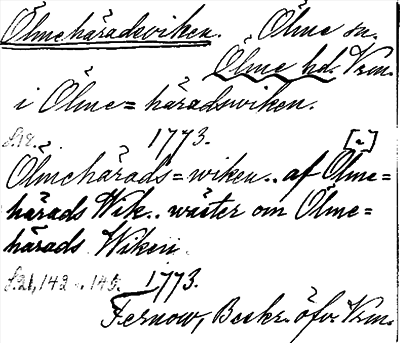 Ölmehäradsviken. Ölme sn.
Ölme hd. Vrm.
i Ölme=häradsviken.
s.18. 1773. [2]
Ölmehärads=wiken.. af Ölme=
härads Wik.. wäster om Ölme=
härads Wiken
s.21, 142 .. 145. 1773.
Fernow, Beskr. öfv. Vrm.